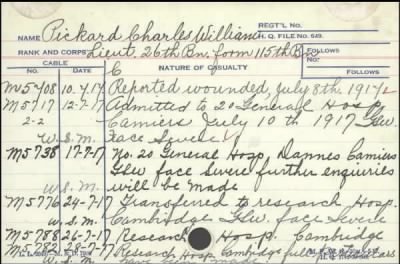 REGT'L NO.
NAME Pickard Charles William H. Q. FILE No. 649.
RANK AND CORPS Lieut. 26th Bn. form 115th Bn FOLLOWS
CABLE NATURE OF CASUALTY
No. DATE FOLLOWS
C
M5708 10.7.17 Reported wounded, July 8th. 1917
M5717 12-7-17 Admitted to 20 General Hosp.
2-2 Camiers July 10th 1917 Gsw.
W.S.M. Face Severe
M5738 17-7-17 No. 20 General Hosp, Dannes Camiers
Gsw face Severe further enquiries
W.S.M. will be made
M5776 24-7-17 Transferred to research Hosp.
W.S.M. Cambridge Gsw. face Severe
M5788 26-7-17 Research Hosp. Cambridge
M5782 28-7-17 Research Hosp Cambridge full
W.S.M. have been made